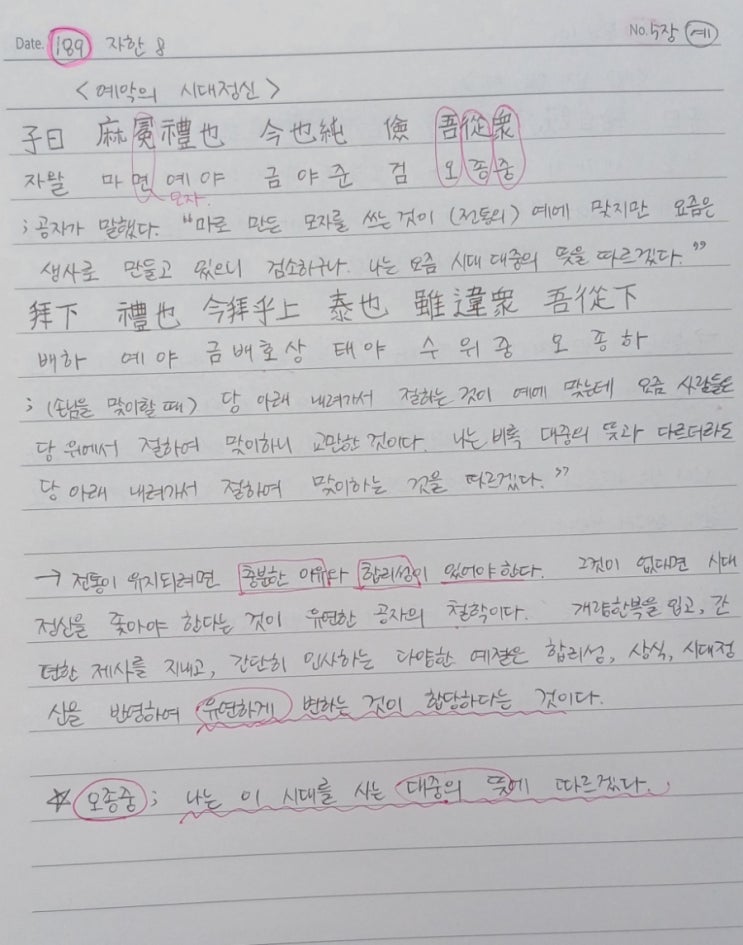 Date. 189 자한 8 No. 5장 예
<예악의 시대정신>
子曰 麻冕禮也 今也純 儉 吾從衆
자왈 마면예야 금야준 검 오종중
모자.
; 공자가 말했다. "마로 만든 모자를 쓰는 것이 (전통의) 예에 맞지만 요즘은
생사로 만들고 있으니 검소하구나. 나는 요즘 시대 대중의 뜻을 따르겠다."
拜下 禮也 今拜乎上 泰也 雖違衆 吾從下
배하 예야 금배호상 태야 수위중 오종하
; (손님을 맞이할 때) 당 아래 내려가서 절하는 것이 예에 맞는데 요즘 사람들은
당 위에서 절하여 맞이하니 교만한 것이다. 나는 비록 대중의 뜻과 다르더라도
당 아래 내려가서 절하여 맞이하는 것을 따르겠다."
→ 전통이 유지되려면 충분한 이유나 합리성이 있어야 한다. 그것이 없다면 시대
정신을 좇아야 한다는 것이 유연한 공자의 철학이다. 개량한복을 입고, 간
편한 제사를 지내고, 간단히 인사하는 다양한 예절은 합리성, 상식, 시대정
신을 반영하여 유연하게 변하는 것이 합당하다는 것이다.
☆ 오종중 ; 나는 이 시대를 사는 대중의 뜻에 따르겠다.